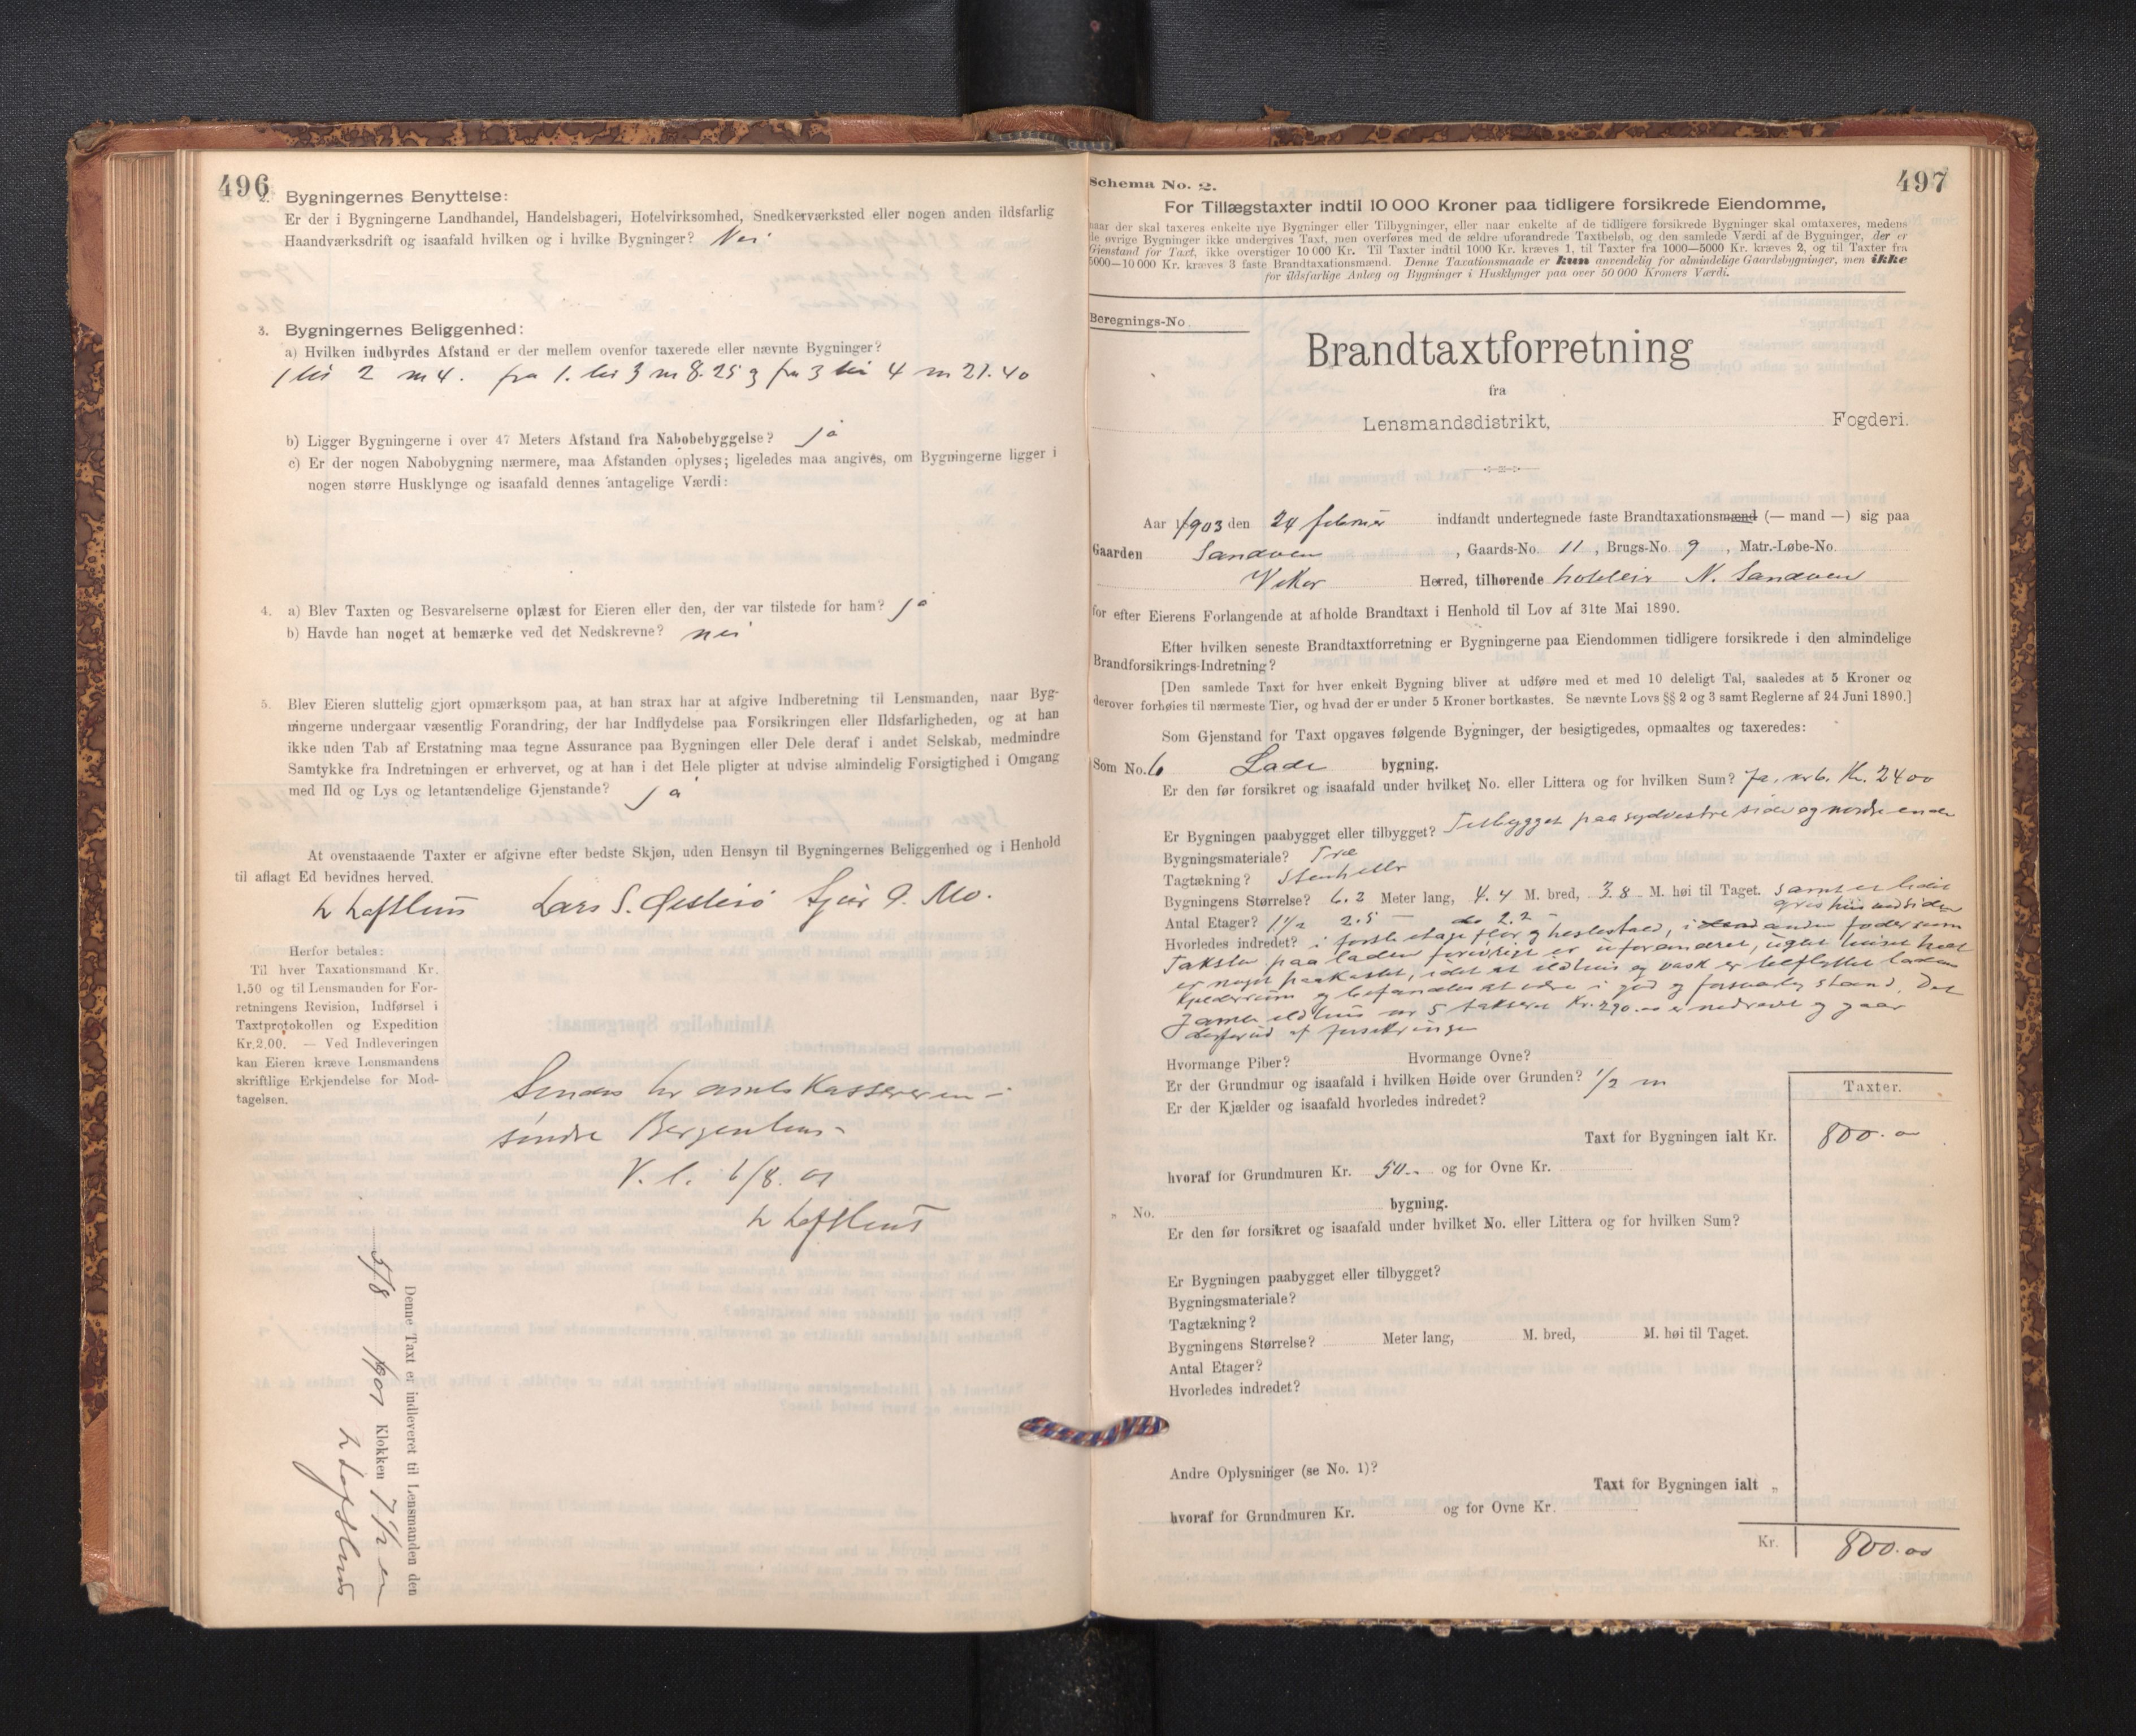 496
2. Bygningernes Benyttelse:
Er der i Bygningerne Landhandel, Handelsbageri, Hotelvirksomhed, Snedkerværksted eller nogen anden ildsfarlig
Haandværksdrift og isaafald hvilken og i hvilke Bygninger? Nei
3. Bygningernes Beliggenhed:
a) Hvilken indbyrdes Afstand er der mellem ovenfor taxerede eller nævnte Bygninger?
1 til 2 m 4. fra 1. til 3 m 8.25 og fra 3 til 4 m 21.40
b) Ligger Bygningerne i over 47 Meters Afstand fra Nabobebyggelse? ja
c) Er der nogen Nabobygning nærmere, maa Afstanden oplyses; ligeledes maa angives, om Bygningerne ligger i
nogen større Husklynge og isaafald dennes antagelige Værdi:
4. a) Blev Taxten og Besvarelserne oplæst for Eieren eller den, der var tilstede for ham? ja
b) Havde han noget at bemærke ved det Nedskrevne? nei
5. Blev Eieren sluttelig gjort opmærksom paa, at han strax har at afgive Indberetning til Lensmanden, naar Byg-
ningerne undergaar væsentlig Forandring, der har Indflydelse paa Forsikringen eller Ildsfarligheden, og at han
ikke uden Tab af Erstatning maa tegne Assurance paa Bygningen eller Dele deraf i andet Selskab, medmindre
Samtykke fra Indretningen er erhvervet, og at han i det Hele pligter at udvise almindelig Forsigtighed i Omgang
med Ild og Lys og letantændelige Gjenstande? ja
At ovenstaaende Taxter er afgivne efter bedste Skjøn, uden Hensyn til Bygningernes Beliggenhed og i Henhold
til aflagt Ed bevidnes herved.
L Lofthus Lars S. Østesø Sjur O. Mo.
Herfor betales:
Til hver Taxationsmand Kr.
1.50 og til Lensmanden for For-
retningens Revision, Indførsel i
Taxtprotokollen og Expedition
Kr. 2.00. — Ved Indleveringen
kan Eieren kræve Lensmandens
skriftlige Erkjendelse for Mod-
tagelsen.
Sendes hr amtskassereren i
søndre Bergenhus
V. l. 6/8. 01
L Lofthus
Denne Taxt er indleveret til Lensmanden den
5/8 1901 Klokken 7 1/2 em
L Lofthus
497
Schema No. 2.
For Tillægstaxter indtil 10 000 Kroner paa tidligere forsikrede Eiendomme,
naar der skal taxeres enkelte nye Bygninger eller Tilbygninger, eller naar enkelte af de tidligere forsikrede Bygninger skal omtaxeres, medens
de øvrige Bygninger ikke undergives Taxt, men overføres med de ældre uforandrede Taxtbeløb, og den samlede Værdi af de Bygninger, der er
Gjenstand for Taxt, ikke overstiger 10 000 Kr. Til Taxter indtil 1000 Kr. kræves 1, til Taxter fra 1000—5000 Kr. kræves 2, og til Taxter fra
5000—10 000 Kr. kræves 3 faste Brandtaxationsmænd. Denne Taxationsmaade er kun anvendelig for almindelige Gaardsbygninger, men ikke
for ildsfarlige Anlæg og Bygninger i Husklynger paa over 50 000 Kroners Værdi.
Beregnings-No
Brandtaxtforretning
fra
Lensmandsdistrikt, Fogderi.
Aar 1903 den 24 februar indfandt undertegnede faste Brandtaxationsmænd (— mand —) sig paa
Gaarden Sandven, Gaards-No. 11, Brugs-No. 9, Matr.-Løbe-No.
Vikør Herred, tilhørende hotéleier N. Sandven
for efter Eierens Forlangende at afholde Brandtaxt i Henhold til Lov af 31te Mai 1890.
Efter hvilken seneste Brandtaxtforretning er Bygningerne paa Eiendommen tidligere forsikrede i den almindelige
Brandforsikrings-Indretning?
[Den samlede Taxt for hver enkelt Bygning bliver at udføre med et med 10 deleligt Tal, saaledes at 5 Kroner og
derover forhøies til nærmeste Tier, og hvad der er under 5 Kroner bortkastes. Se nævnte Lovs §§ 2 og 3 samt Reglerne af 24 Juni 1890.]
Som Gjenstand for Taxt opgaves følgende Bygninger, der besigtigedes, opmaaltes og taxeredes:
Som No. 6 Lade bygning.
Er den før forsikret og isaafald under hvilket No. eller Littera og for hvilken Sum? Ja. nr 6. Kr. 2400
Er Bygningen paabygget eller tilbygget? Tilbygget paa sydvestre side og nordre ende
Bygningsmateriale? Træ
Tagtækning? Stenheller
Bygningens Størrelse? 6.2 Meter lang, 4.4 M. bred, 3.8 M. høi til Taget. samt et lidet
Antal Etager? 1 1/2 2.5 — do 2.2 — ved siden
Hvorledes indreder? i første etage flor og hestestald, i anden foderrum
Taksten paa laden forøvrigt er uforandret,
er noget paakostet, idet at ildhus og vask er tilflyttet laden
og befandtes at være i god og forsvarlig stand. Det
gamle ildhus nr 5 takseret Kr. 290.00 er nedrevet og gaar
af forsikringen
Hvormange Piber? Hvormange Ovne?
Er der Grundmur og isaafald i hvilken Høide over Grunden? 1/2 m
Er der Kjælder og isaafald hvorledes indredet?
Taxter.
Taxt for Bygningen ialt Kr. 800.00
hvoraf for Grundmuren Kr. 50.- og for Ovne Kr.
„ No. bygning.
Er den før forsikret og isaafald under hvilket No. eller Littera og for hvilken Sum?
Er Bygningen paabygget eller tilbygget?
Bygningsmateriale?
Tagtækning?
Bygningens Størrelse? Meter lang, M. bred, M. høi til Taget.
Antal Etager?
Hvorledes indredet?
Andre Oplysninger (se No. 1)?
Taxt for Bygningen ialt „
hvoraf for Grundmuren Kr. og for Ovne Kr.
Kr. 800.00